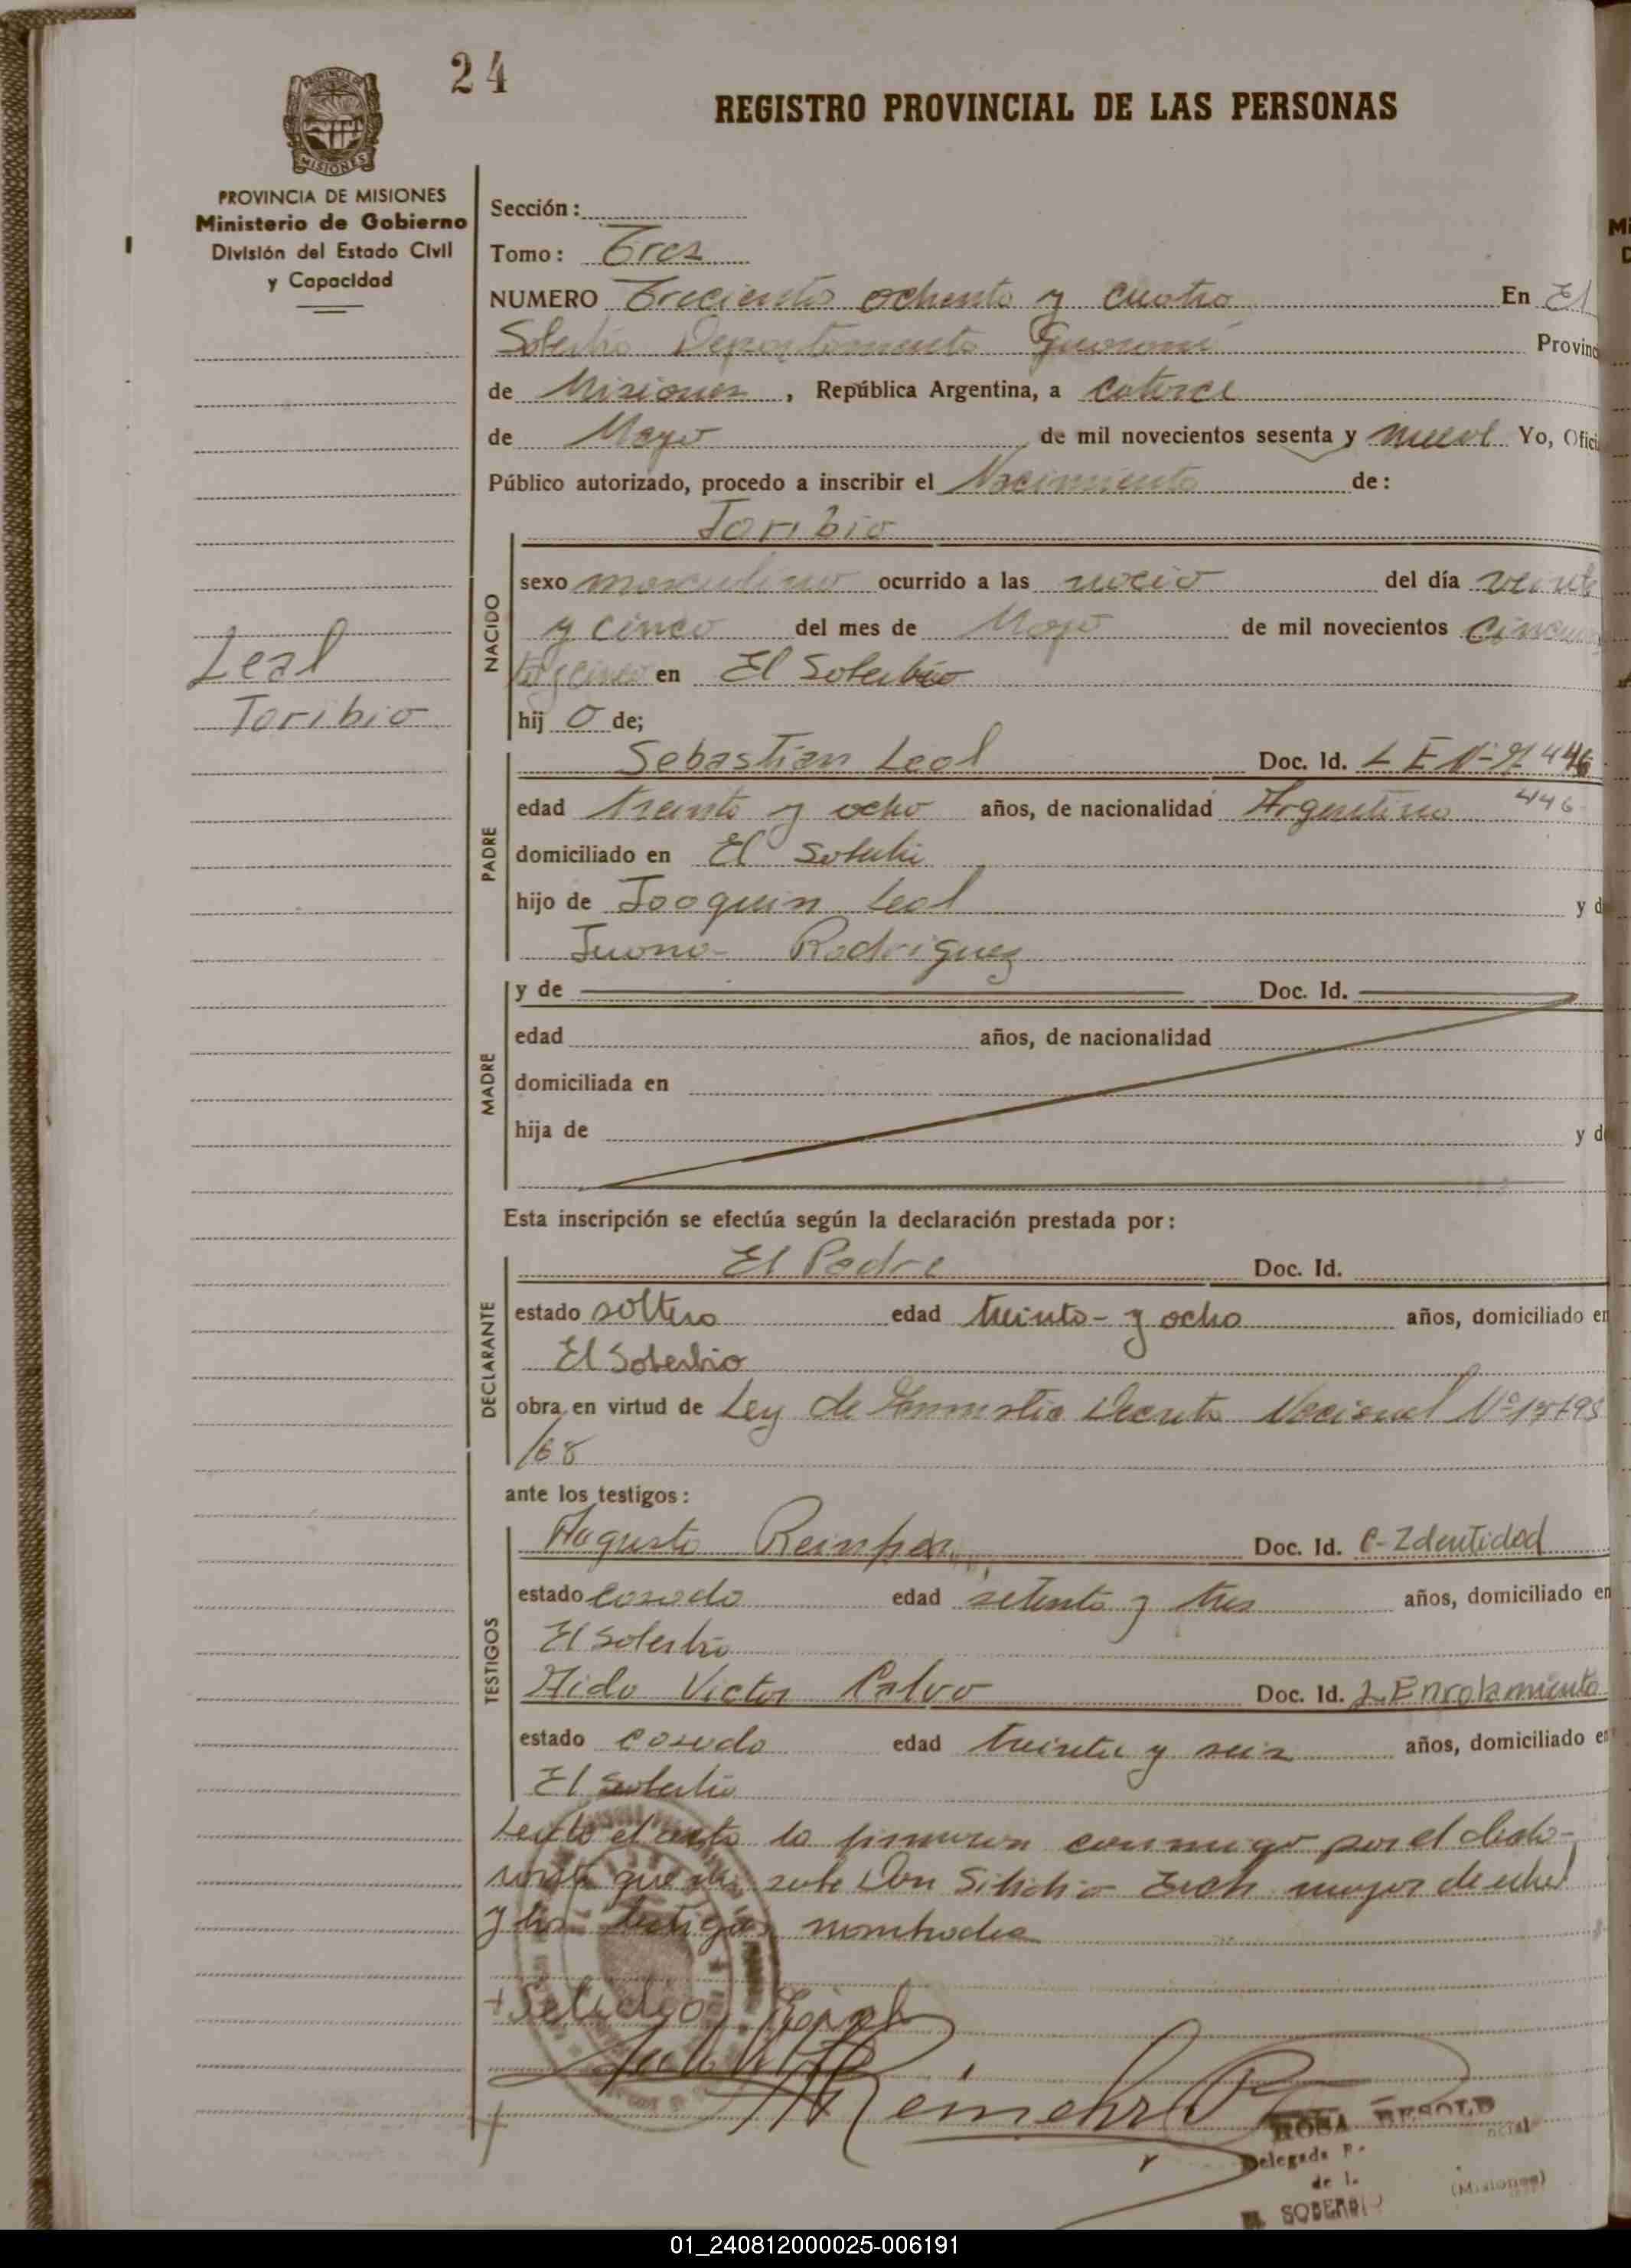 24
REGISTRO PROVINCIAL DE LAS PERSONAS
PROVINCIA DE
MISIONES
PROVINCIA DE MISIONES
Ministerio de Gobierno
División del Estado Civil
y Capacidad
Leal
Toribio
Sección:
Tomo: Tres
NUMERO Treciento ochenta y cuatro En El
Soberbio Departamento Guarani Provinc
de Misiones, República Argentina, a catorce
de Mayo de mil novecientos sesenta y nueve Yo, Ofici
Público autorizado, procedo a inscribir el Nacimiento de:
Toribio
NACIDO
sexo masculino ocurrido a las del día veinte
y cinco del mes de Mayo de mil novecientos cincuen
ta y cinco en El Soberbio
hij o de;
PADRE
Sebastian Leal Doc. Id. L E Nº 446
edad treinta y ocho años, de nacionalidad Argentino 446
domiciliado en El Soberbi
hijo de Joaquin Leal y d
Juana Rodriguez
MADRE
y de Doc. Id.
edad años, de nacionalidad
domiciliada en
hija de y d
Esta inscripción se efectúa según la declaración prestada por:
DECLARANTE
El Padre Doc. Id.
estado soltero edad treinta y ocho años, domiciliado en
El Soberbio
obra en virtud de Ley de Amnistia Decreto Nacional Nº
/68
ante los testigos:
TESTIGOS
Augusto Doc. Id. C-Identidad
estado casado edad setenta y tres años, domiciliado en
El Soberbio
Aido Victor Calvo Doc. Id. L. Enrolamiento
estado casado edad treinta y seis años, domiciliado en
El Soberbio
Leido el acta la firmaron conmigo por el
que Don mayor de edad
y los testigos nombrados
Reimehr
ROSA BESOLD
Delegada
de
EL SOBERBIO (Misiones)
01_240812000025-006191